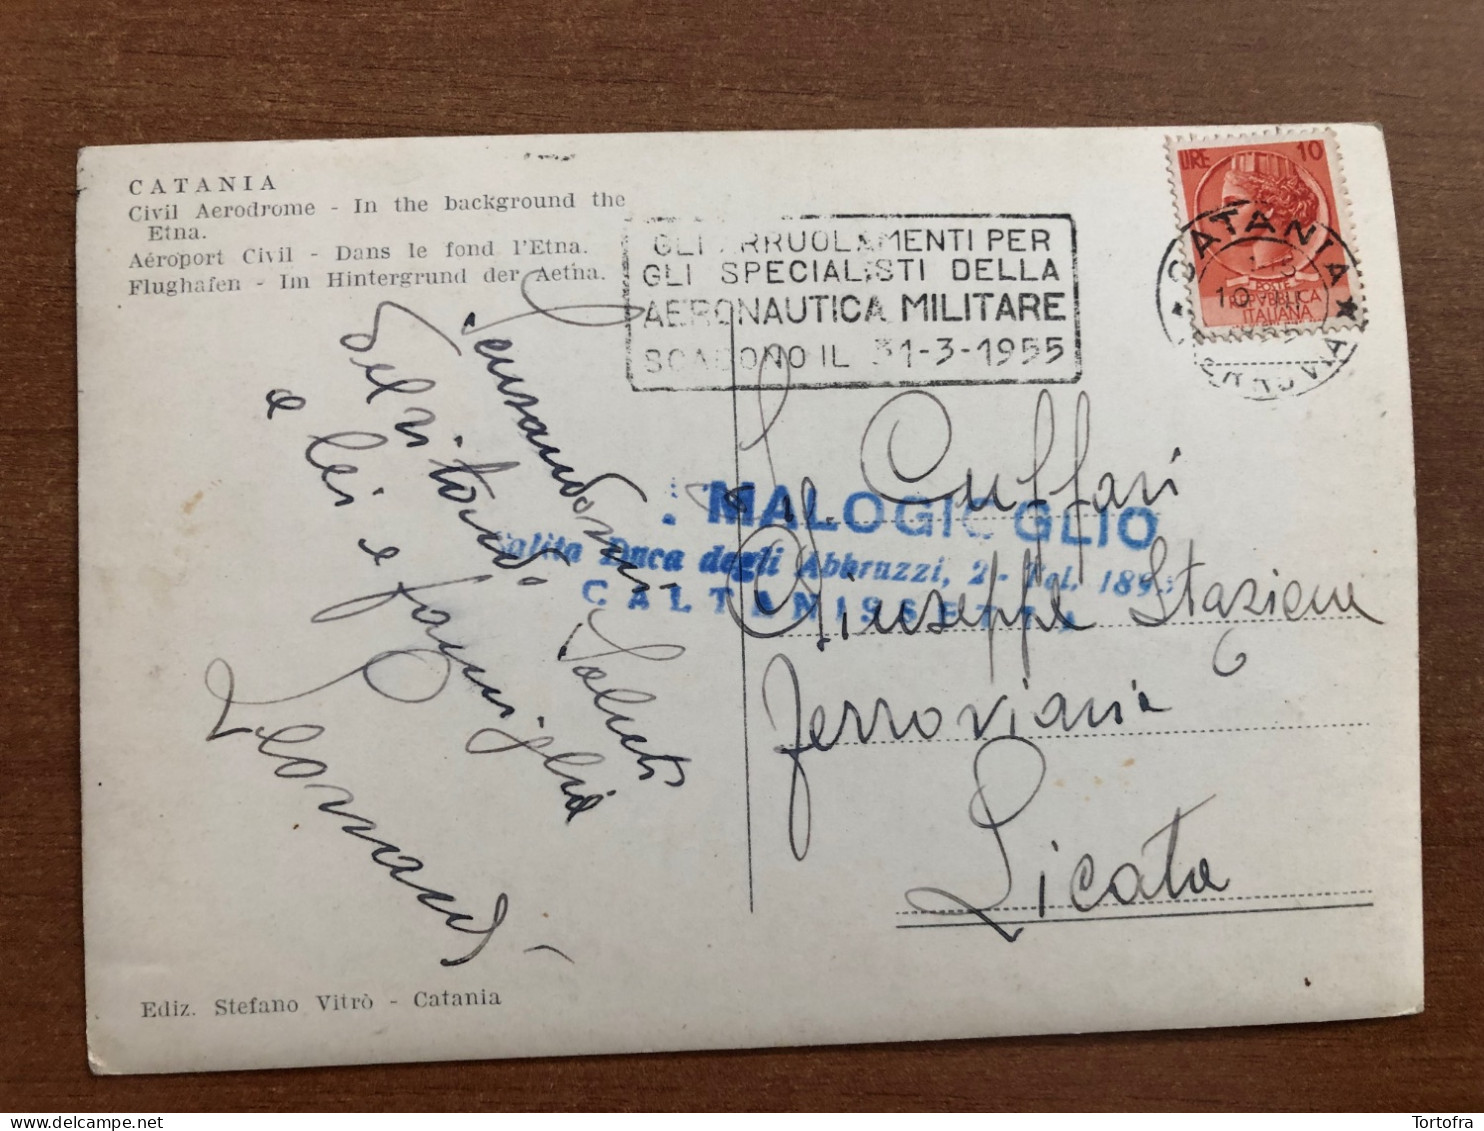 CATANIA
Civil Aerodrome - In the background the
Etna.
Aéroport Civil - Dans le fond l'Etna.
Flughafen - Im Hintergrund der Aetna.
GLI ARRUOLAMENTI PER
GLI SPECIALISTI DELLA
AERONAUTICA MILITARE
SCADONO IL 31-3-1955
LIRE 10
POSTE
REPUBBLICA
ITALIANA
CATANIA
MALOGIOGLIO
Salita Duca degli Abbruzzi, 2 - Tel. 189
CALTANISSETTA
Cuffari
Giuseppe Stazione
Ferroviaria
Licata
Saluti
a lei e famiglia
Ediz. Stefano Vitrò - Catania
Tortofra